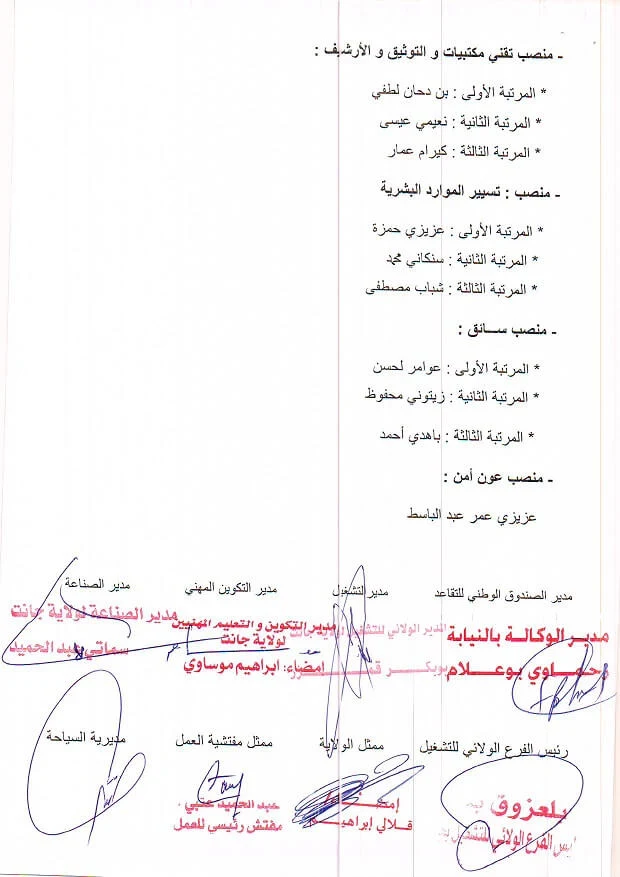 - منصب تقني مكتبيات و التوثيق و الأرشيف :
* المرتبة الأولى : بن دحان لطفي
* المرتبة الثانية : نعيمي عيسى
* المرتبة الثالثة : كيرام عمار
- منصب : تسيير الموارد البشرية
* المرتبة الأولى : عزيزي حمزة
* المرتبة الثانية : سنكاني محمد
* المرتبة الثالثة : شباب مصطفى
- منصب سـائق :
* المرتبة الأولى : عوامر لحسن
* المرتبة الثانية : زيتوني محفوظ
* المرتبة الثالثة : باهدي أحمد
- منصب عون أمن :
عزيزي عمر عبد الباسط
مدير الصندوق الوطني للتقاعد
مدير الوكالة بالنيابة
بوعلام
مدير التشغيل
المدير الولائي للتشغيل
مدير التكوين المهني
مدير التكوين و التعليم المهنيين
لولاية جانت
إمضاء: ابراهيم موساوي
مدير الصناعة
مدير الصناعة لولاية جانت
سماتي عبد الحميد
رئيس الفرع الولائي للتشغيل
بلعزوق
الفرع الولائي للتشغيل
ممثل الولاية
قلالي إبراهيم
ممثل مفتشية العمل
عبد الحميد
مفتش رئيسي للعمل
مديرية السياحة